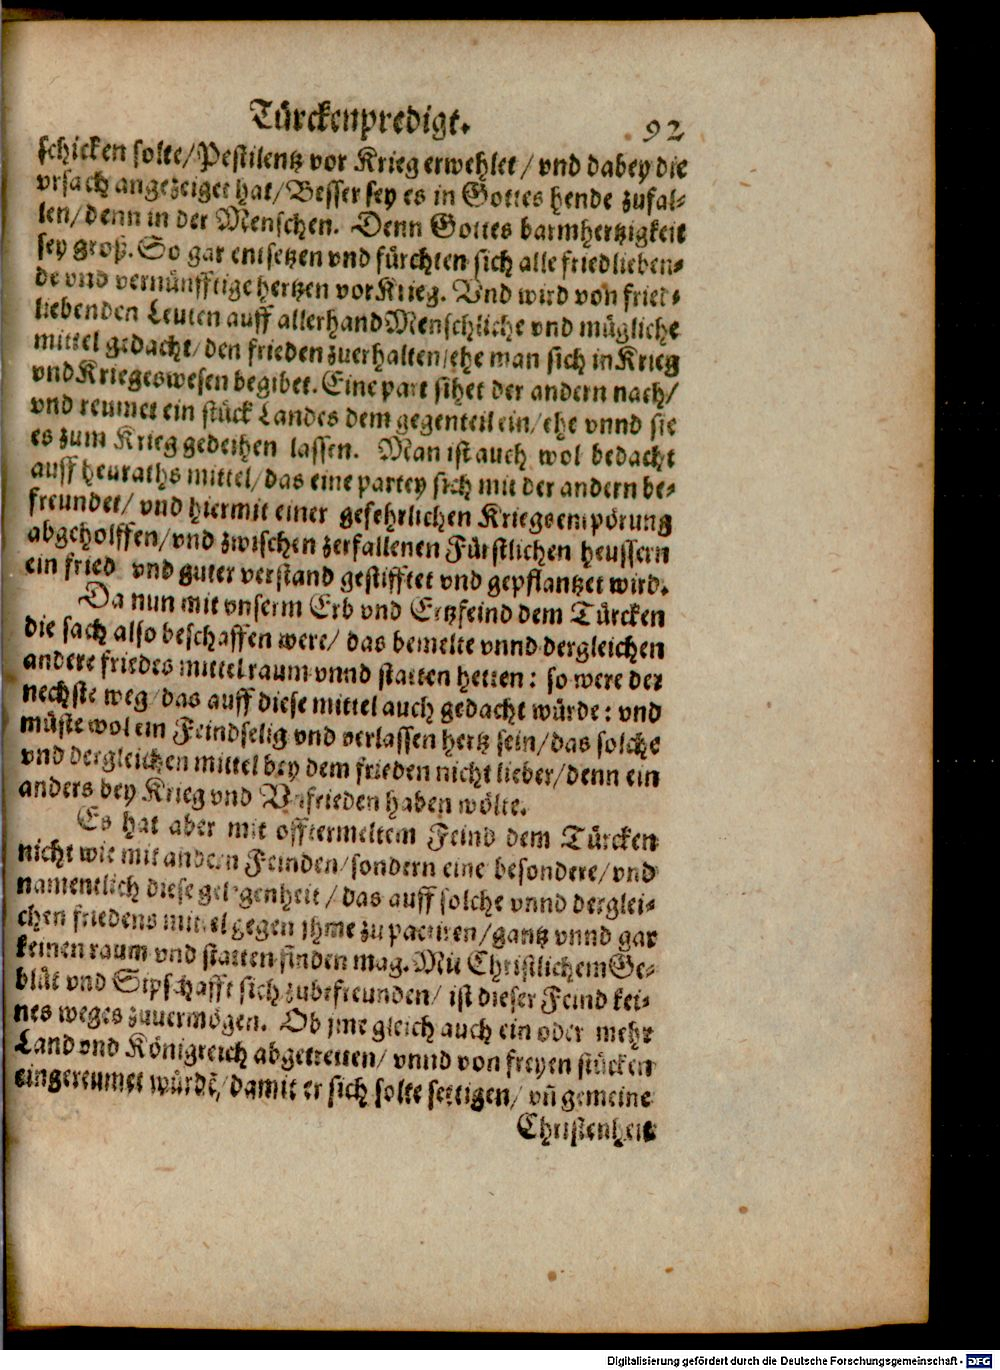 Türckenpredigt. 92
schicken solte/Pestilentz vor Krieg erwehlet/vnd dabey die
vrsach angezeiget hat/Besser sey es in Gottes hende zufal-
len/denn in der Menschen. Denn Gottes barmhertzigkeit
sey groß. So gar entsetzen vnd fürchten sich alle friedlieben-
de vnd vernünfftige hertzen vor Krieg. Vnd wird von fried-
liebenden Leuten auff allerhand Menschliche vnd mügliche
mittel gedacht/den frieden zuerhalten/ehe man sich in Krieg
vnd Kriegeswesen begibet. Eine part sihet der andern nach/
vnd reumet ein stück Landes dem gegenteil ein/ehe vnnd sie
es zum Krieg gedeihen lassen. Man ist auch wol bedacht
auff heuraths mittel/das eine partey sich mit der andern be-
freundet/vnd hiermit einer gefehrlichen Kriegsempörung
abgeholffen/vnd zwischen zerfallenen Fürstlichen heussern
ein fried vnd guter verstand gestifftet vnd gepflantzet wird.
Da nun mit vnserm Erb vnd Ertzfeind dem Türcken
die sach also beschaffen were/das bemelte vnnd dergleichen
andere friedes mittel raum vnnd statten hetten: so were der
nechste weg/das auff diese mittel auch gedacht würde: vnd
müste wol ein Feindselig vnd verlassen hertz sein/das solche
vnd dergleichen mittel bey dem frieden nicht lieber/denn ein
anders bey Krieg vnd Vnfrieden haben wölte.
Es hat aber mit offtermeltem Feind dem Türcken
nicht wie mit andern Feinden/sondern eine besondere/vnd
namentlich diese gelegenheit/das auff solche vnnd derglei-
chen friedens mittel gegen jhme zu pacissen/gantz vnnd gar
keinen raum vnd statten finden mag. Mit Christlichem Ge-
blüt vnd Sipschafft sich zubefreunden/ist dieser Feind kei-
nes weges zuuermögen. Ob jme gleich auch ein oder mehr
Land vnd Königreich abgetretten/vnnd von freyen stücken
eingereumet würdē/damit er sich solte settigen/vn̄ gemeine
Christenheit
Digitalisierung gefördert durch die Deutsche Forschungsgemeinschaft - DFG